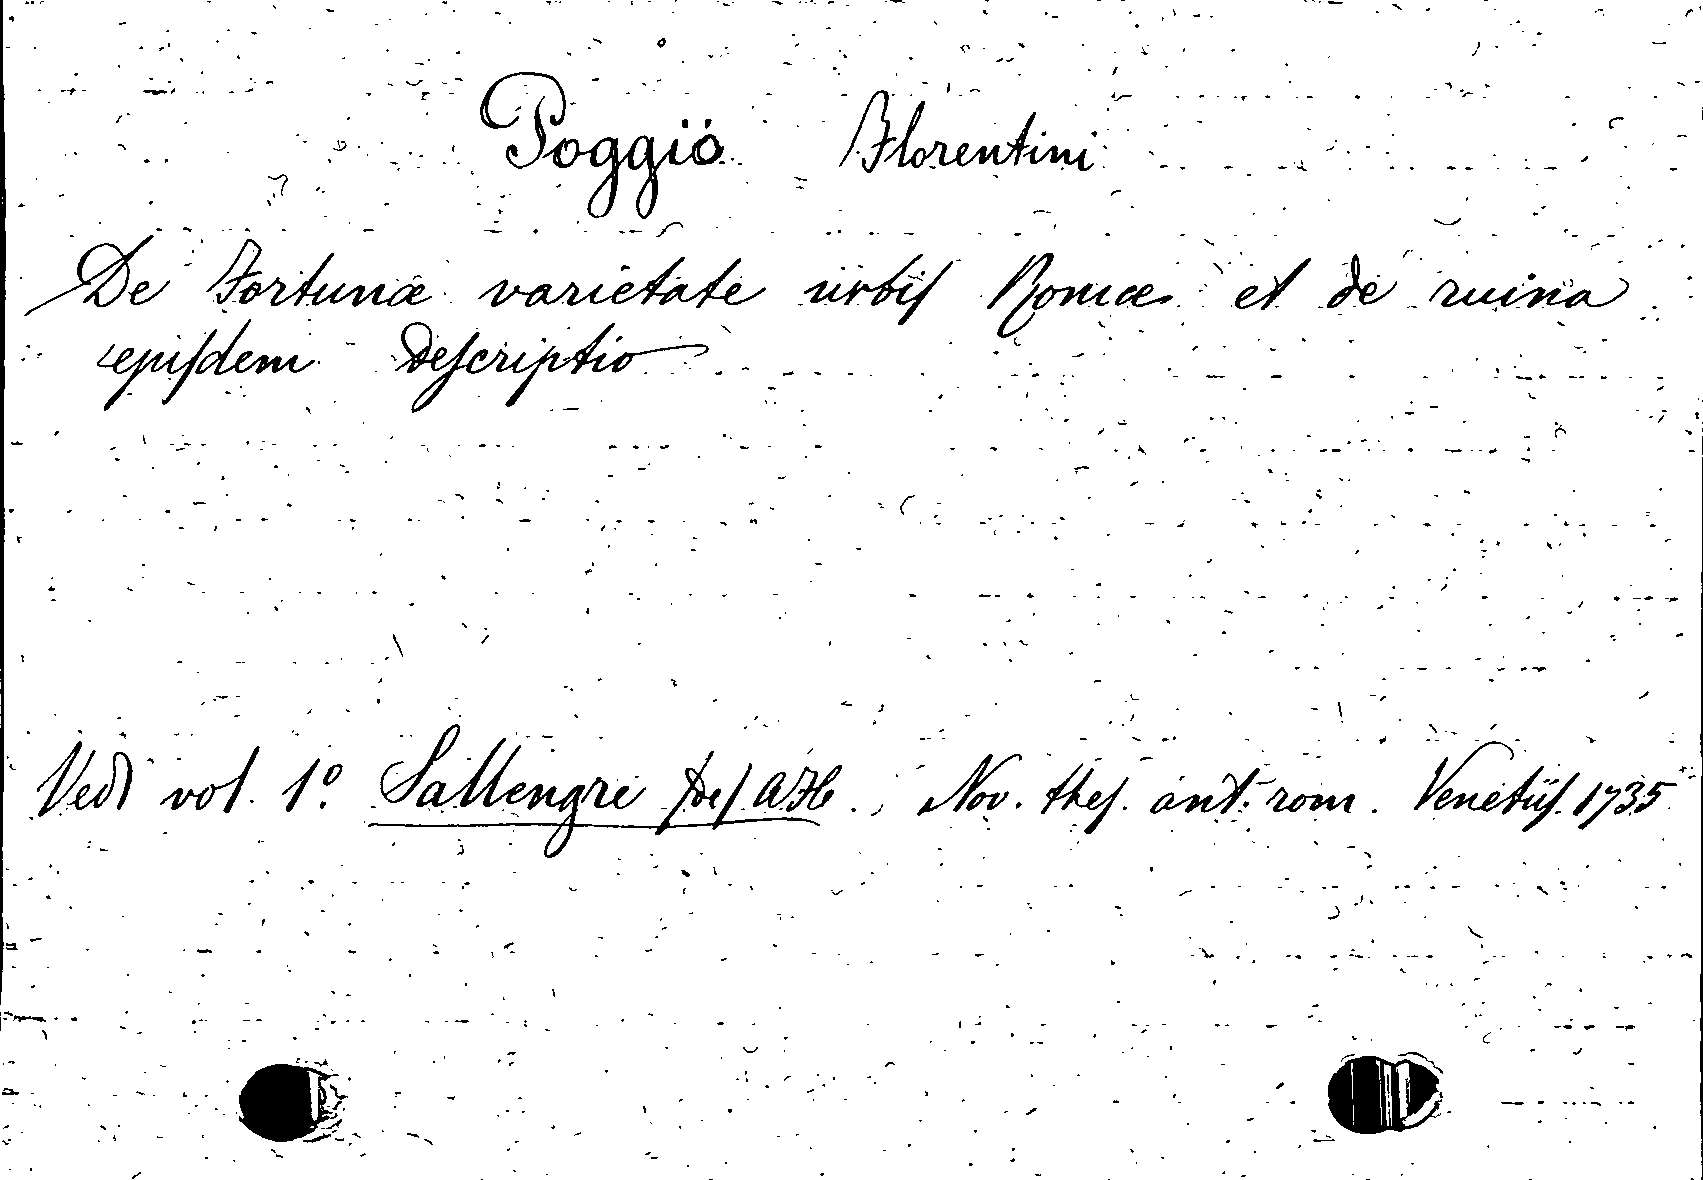 Poggio Florentini
De Fortunæ varietate urbis Romæ et de ruina
ejusdem descriptio
Vedi vol. 1º. Sallengre (de) A. H. , Nov. thes. ant. rom. Venetiis. 1735